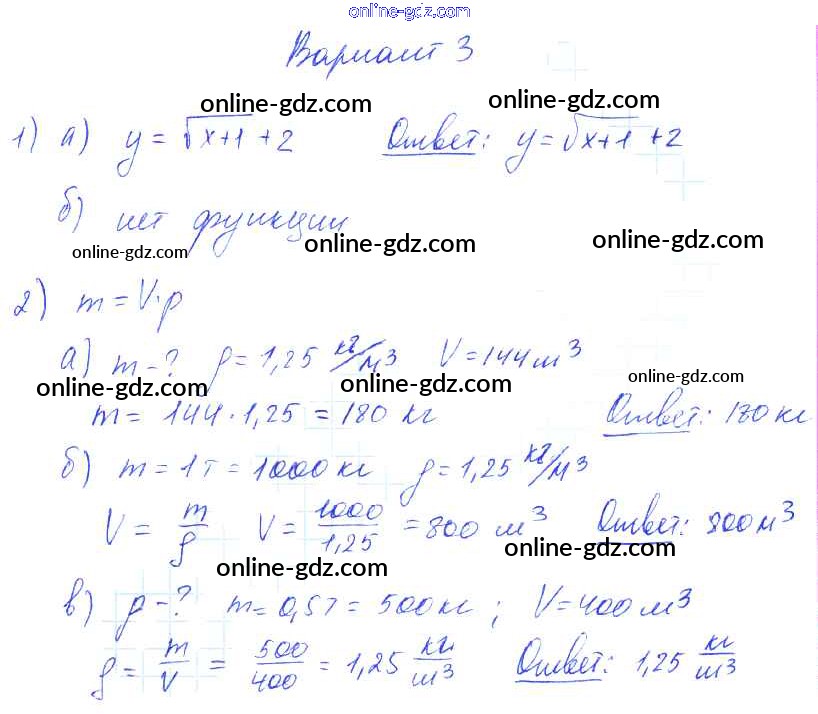 online-gdz.com
Вариант 3
online-gdz.com online-gdz.com
1) а) y = √x+1 + 2 Ответ: y = √x+1 + 2
б) нет функции
online-gdz.com online-gdz.com online-gdz.com
2) m = V·ρ
а) m - ? ρ = 1,25 кг/м³ V = 144 м³
online-gdz.com online-gdz.com online-gdz.com
m = 144 · 1,25 = 180 кг Ответ: 180 кг
б) m = 1т = 1000 кг ρ = 1,25 кг/м³
V = m/ρ V = 1000/1,25 = 800 м³ Ответ: 800 м³
online-gdz.com online-gdz.com
в) ρ - ? m = 0,5т = 500 кг ; V = 400 м³
ρ = m/V = 500/400 = 1,25 кг/м³ Ответ: 1,25 кг/м³